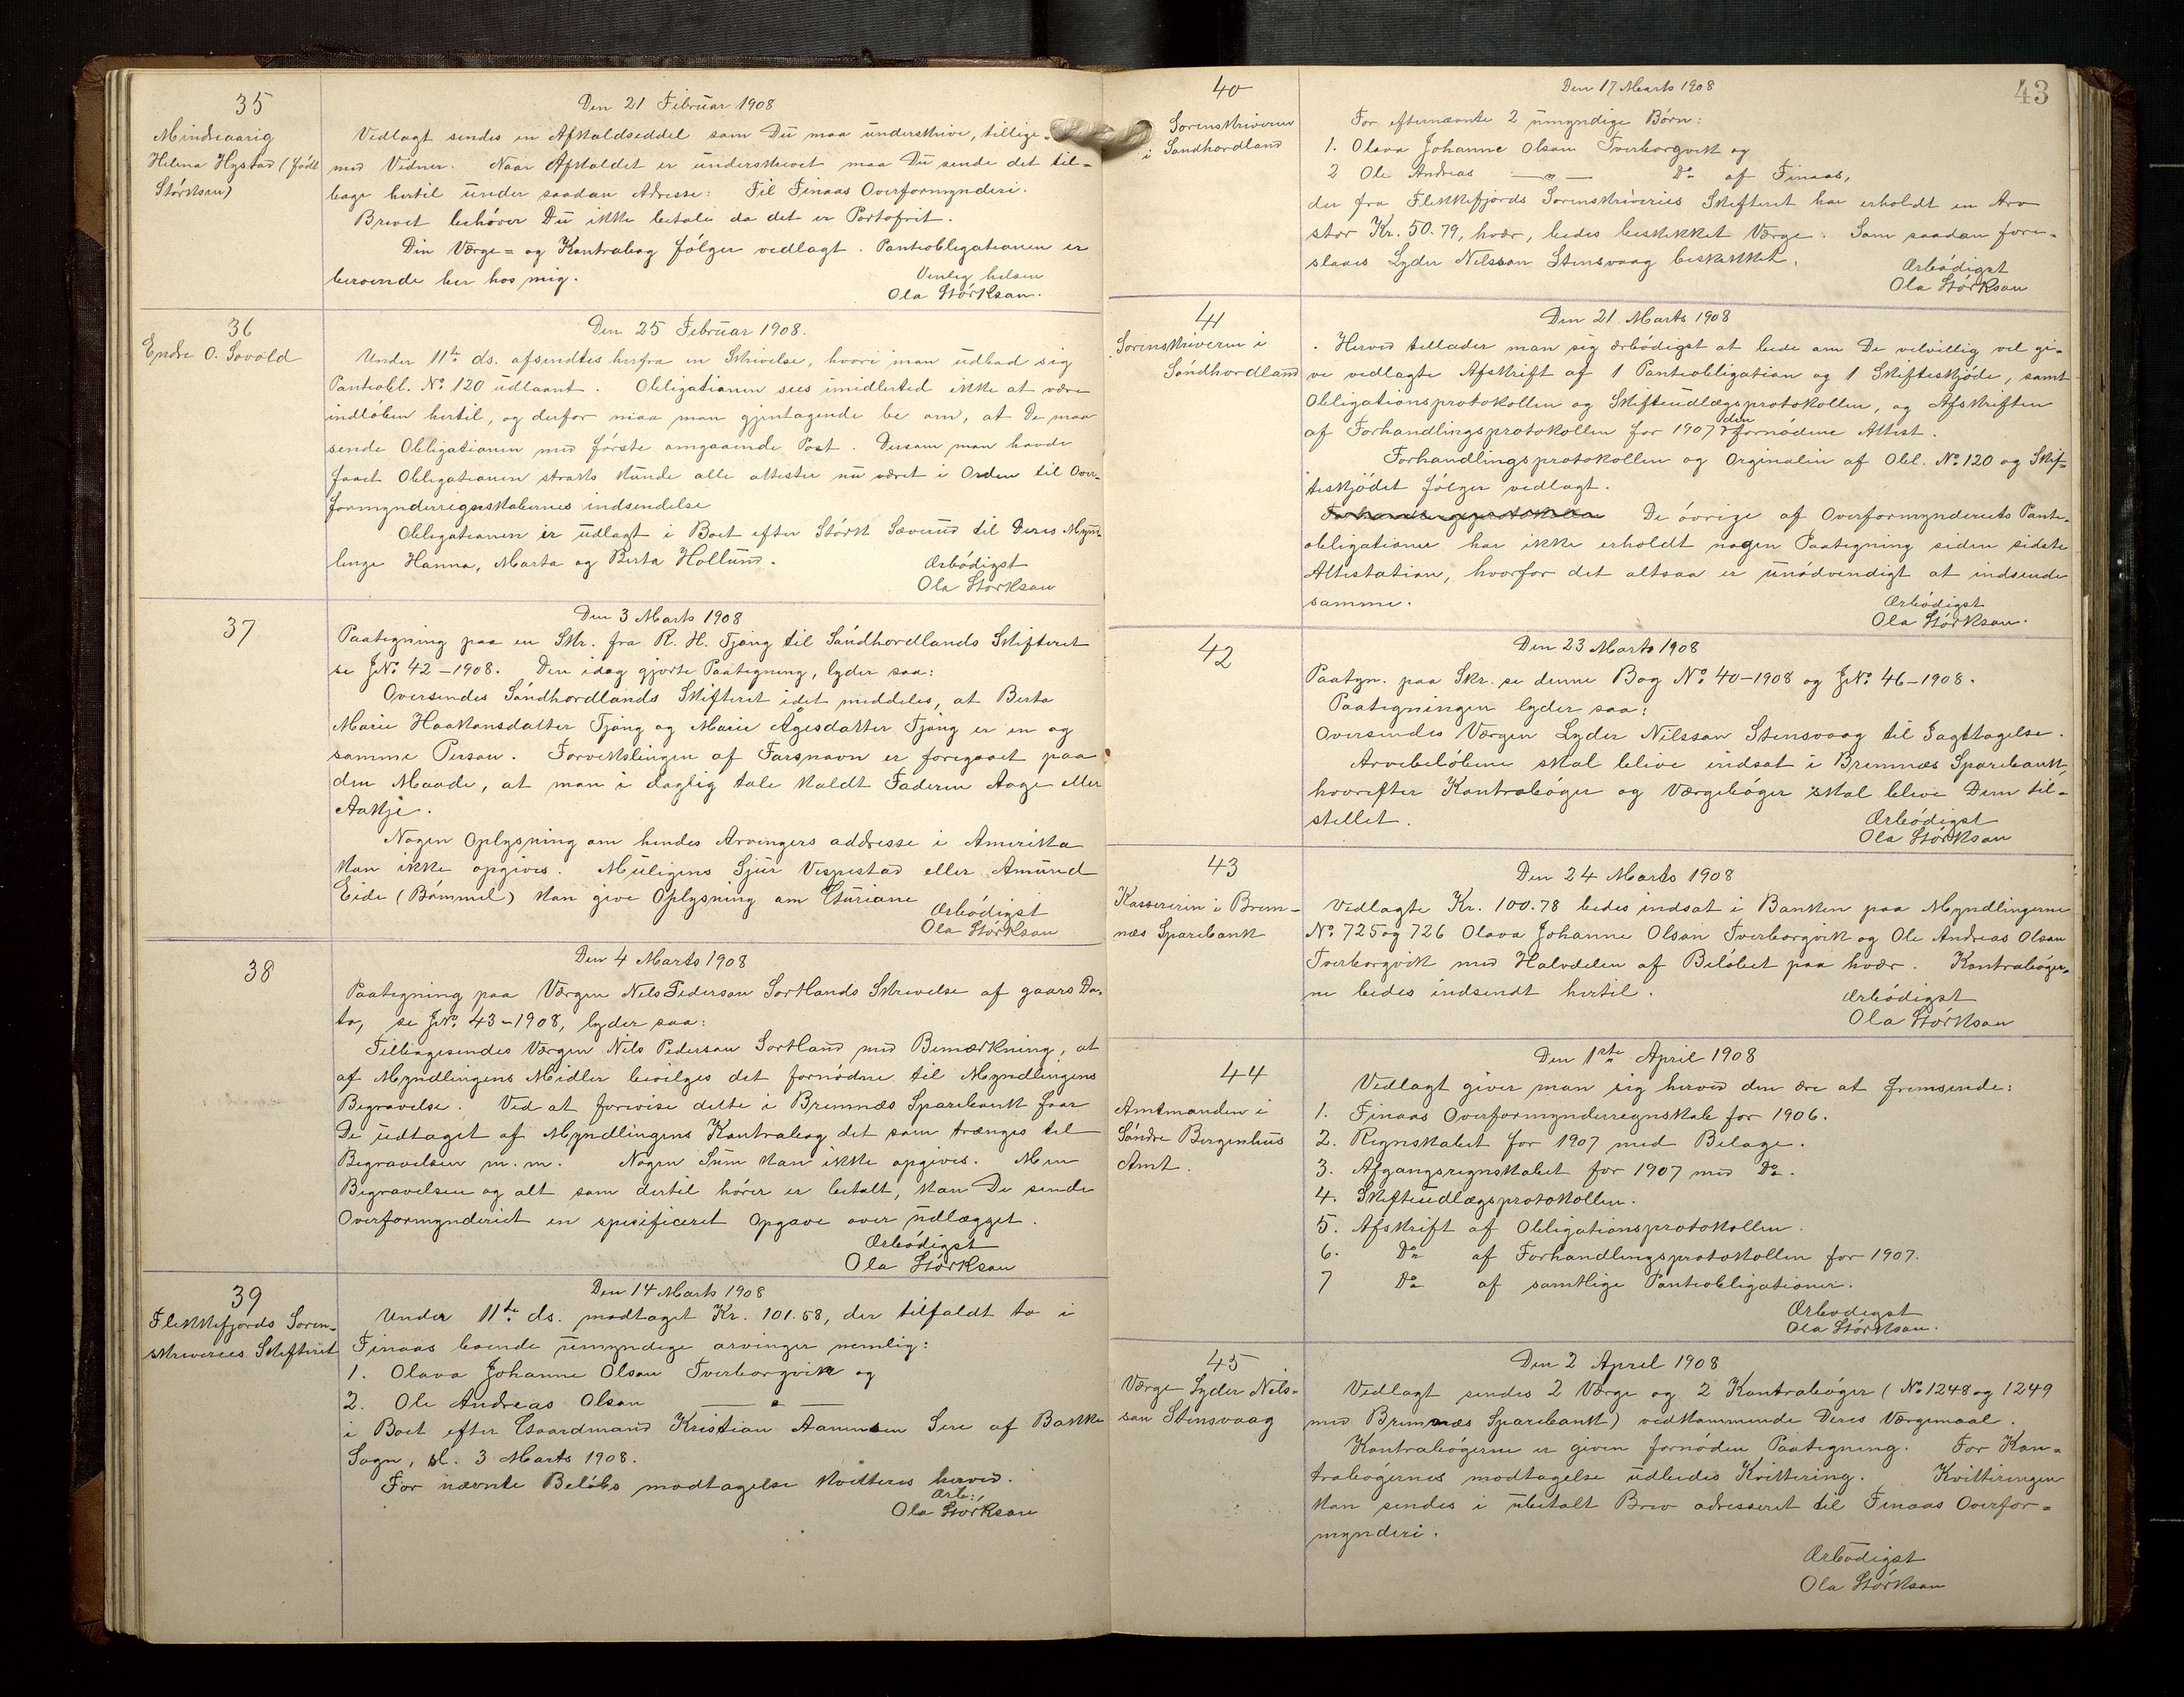 35
Mindreaarig
Helena Hystad (født
Størksen)
Den 21 Februar 1908
Vedlagt sendes en Afkaldseddel som Du maa underskrive, tillige-
med Vidner. Naar Afkaldet er underskrevet maa Du sende det til-
bage hertil under saadan Adresse: Til Finaas Overformynderi.
Brevet behøver Du ikke betale da det er Portofrit.
Din Værge= og Kontrabog følger vedlagt. Panteobligationen er
beroende her hos mig.
Venlig hilsen
Ola Størkson.
36
Endre O. Sovold
Den 25 Februar 1908.
Under 11te ds. afsendtes herfra en Skrivelse, hvori man udbad sig
Panteobl. No 120 udlaant. Obligationen sees imidlertid ikke at være
indløben hertil, og derfor maa man gjentagende be om, at De maa
sende Obligationen med første omgaaende Post. Dersom man havde
faaet Obligationen straks kunde alle attester nu været i Orden til Over-
formynderregnskabernes indsendelse
Obligationen er udlagt i Boet efter Størk Sæverud til Deres Mynd-
linge Hanna, Marta og Berta Hollund.
Ærbødigst
Ola Størkson
37
Den 3 Marts 1908
Paategning paa en Skr. fra R. H. Tjong til Søndhordlands Skifteret
se JNo. 42-1908. Den idag gjorte Paategning, lyder saa:
Oversendes Søndhordlands Skifteret idet meddeles, at Berta
Marie Haakonsdatter Tjong og Marie Ågesdatter Tjong er en og
samme Person. Forvekslingen af Farsnavn er foregaaet paa
den Maade, at man i daglig tale kaldt Faderen Aage eller
Aakje.
Nogen Oplysning om hendes Arvingers addresse i Amerika
kan ikke opgives. Muligens Sjur Vespestad eller Amund
Eide (Bømmel) kan give Oplysning om Guriane
Ærbødigst
Ola Størkson
38
Den 4 Marts 1908
Paategning paa Værgen Nils Pederson Sortlands Skrivelse af gaars Da-
to, se JNo. 43-1908, lyder saa:
Tilbagesendes Værgen Nils Pederson Sortland med Bemærkning, at
af Myndlingens Midler bevilges det fornødne til Myndlingens
Begravelse. Ved at forevise dette i Bremnæs Sparebank faar
De udtaget af Myndlingens Kontrabog det som trænges til
Begravelsen m.m. Nogen Sum kan ikke opgives. Men
Begravelsen og alt som dertil hører er betalt, kan De sende
Overformynderiet en spesificeret Opgave over udlægget.
Ærbødigst
Ola Størkson
39
Flekkefjords Soren-
skriveries Skifteret
Den 14 Marts 1908
Under 11te ds. modtaget Kr. 101.58, der tilfaldt to i
Finaas boende umyndige arvinger nemlig:
1. Olava Johanne Olson Tverborgvik og
2. Ole Andreas Olson — " —
i Boet efter Gaardmand Kristian Aanensen Sire af Bakke
Sogn, sl. 3 Marts 1908.
For nævnte Beløbs modtagelse kvitteres herved.
Ærb:,
Ola Størkson
43
40
Sorenskriveren
i Søndhordland
Den 17 Marts 1908
For efternævnte 2 umyndige Børn:
1. Olava Johanne Olson Tverborgvik og
2 Ole Andreas — " — Do af Finaas,
der fra Flekkefjords Sorenskriveries Skifteret har erholdt en Arv
stor Kr. 50.79, hvær, bedes beskikket Værge. Som saadan fore-
slaaes Lyder Nilsson Stensvaag beskikket.
Ærbødigst
Ola Størkson
41
Sorenskriveren i
Søndhordland
Den 21 Marts 1908
Herved tillader man sig ærbødigst at bede om De velvillig vil gi-
ve vedlagte Afskrift af 1 Panteobligation og 1 Skifteskjøde, samt
Obligationsprotokollen og Skifteudlægsprotokollen, og Afskriften
af Forhandlingsprotokollen for 1907 den fornødne Attest.
Forhandlingsprotokollen og Orginalen af Obl. No. 120 og Skif-
teskjødet følger vedlagt.
Forhandlingsprotokollen De øvrige af Overformynderiets Pante-
obligationer har ikke erholdt nogen Paategning siden sidste
Attestation, hvorfor det altsaa er unødvendigt at indsende
samme.
Ærbødigst
Ola Størkson.
42
Den 23 Marts 1908
Paategn. paa Skr. se denne Bog No. 40-1908 og JNo. 46-1908.
Paategningen lyder saa:
Oversendes Værgen Lyder Nilsson Stensvaag til Iagttagelse.
Arvebeløbene skal blive indsat i Bremnæs Sparebank,
hvorefter Kontrabøger og Værgebøger skal blive Dem til-
stellet.
Ærbødigst
Ola Størkson
43
Kassereren i Brem-
næs Sparebank
Den 24 Marts 1908
Vedlagte Kr. 100.78 bedes indsat i Banken paa Myndlingerne
No. 725 og 726 Olava Johanne Olson Tverborgvik og Ole Andreas Olson
Tverborgvik med Halvdelen af Beløbet paa hvær. Kontrabøger-
ne bedes indsendt hertil.
Ærbødigst
Ola Størkson
44
Amtmanden i
Søndre Bergenhus
Amt.
Den 1ste April 1908
Vedlagt giver man sig herved den ære at fremsende:
1. Finaas Overformynderregnskab for 1906.
2. Regnskabet for 1907 med Bilage.
3. Afgangsregnskabet for 1907 med Do.
4. Skifteudlægsprotokollen.
5. Afskrift af Obligationsprotokollen.
6. Do af Forhandlingsprotokollen for 1907.
7 Do af samtlige Panteobligationer.
Ærbødigst
Ola Størkson.
45
Værge Lyder Nils-
son Stensvaag
Den 2 April 1908
Vedlagt sendes 2 Værge og 2 Kontrabøger (No. 1248 og 1249
med Bremnæs Sparebank) vedkommende Deres Værgemaal.
Kontrabøgerne er given fornøden Paategning. For Kon-
trabøgernes modtagelse udbedes Kvittering. Kvitteringen
kan sendes i ubetalt Brev adresseret til Finaas Overfor-
mynderi.
Ærbødigst
Ola Størkson